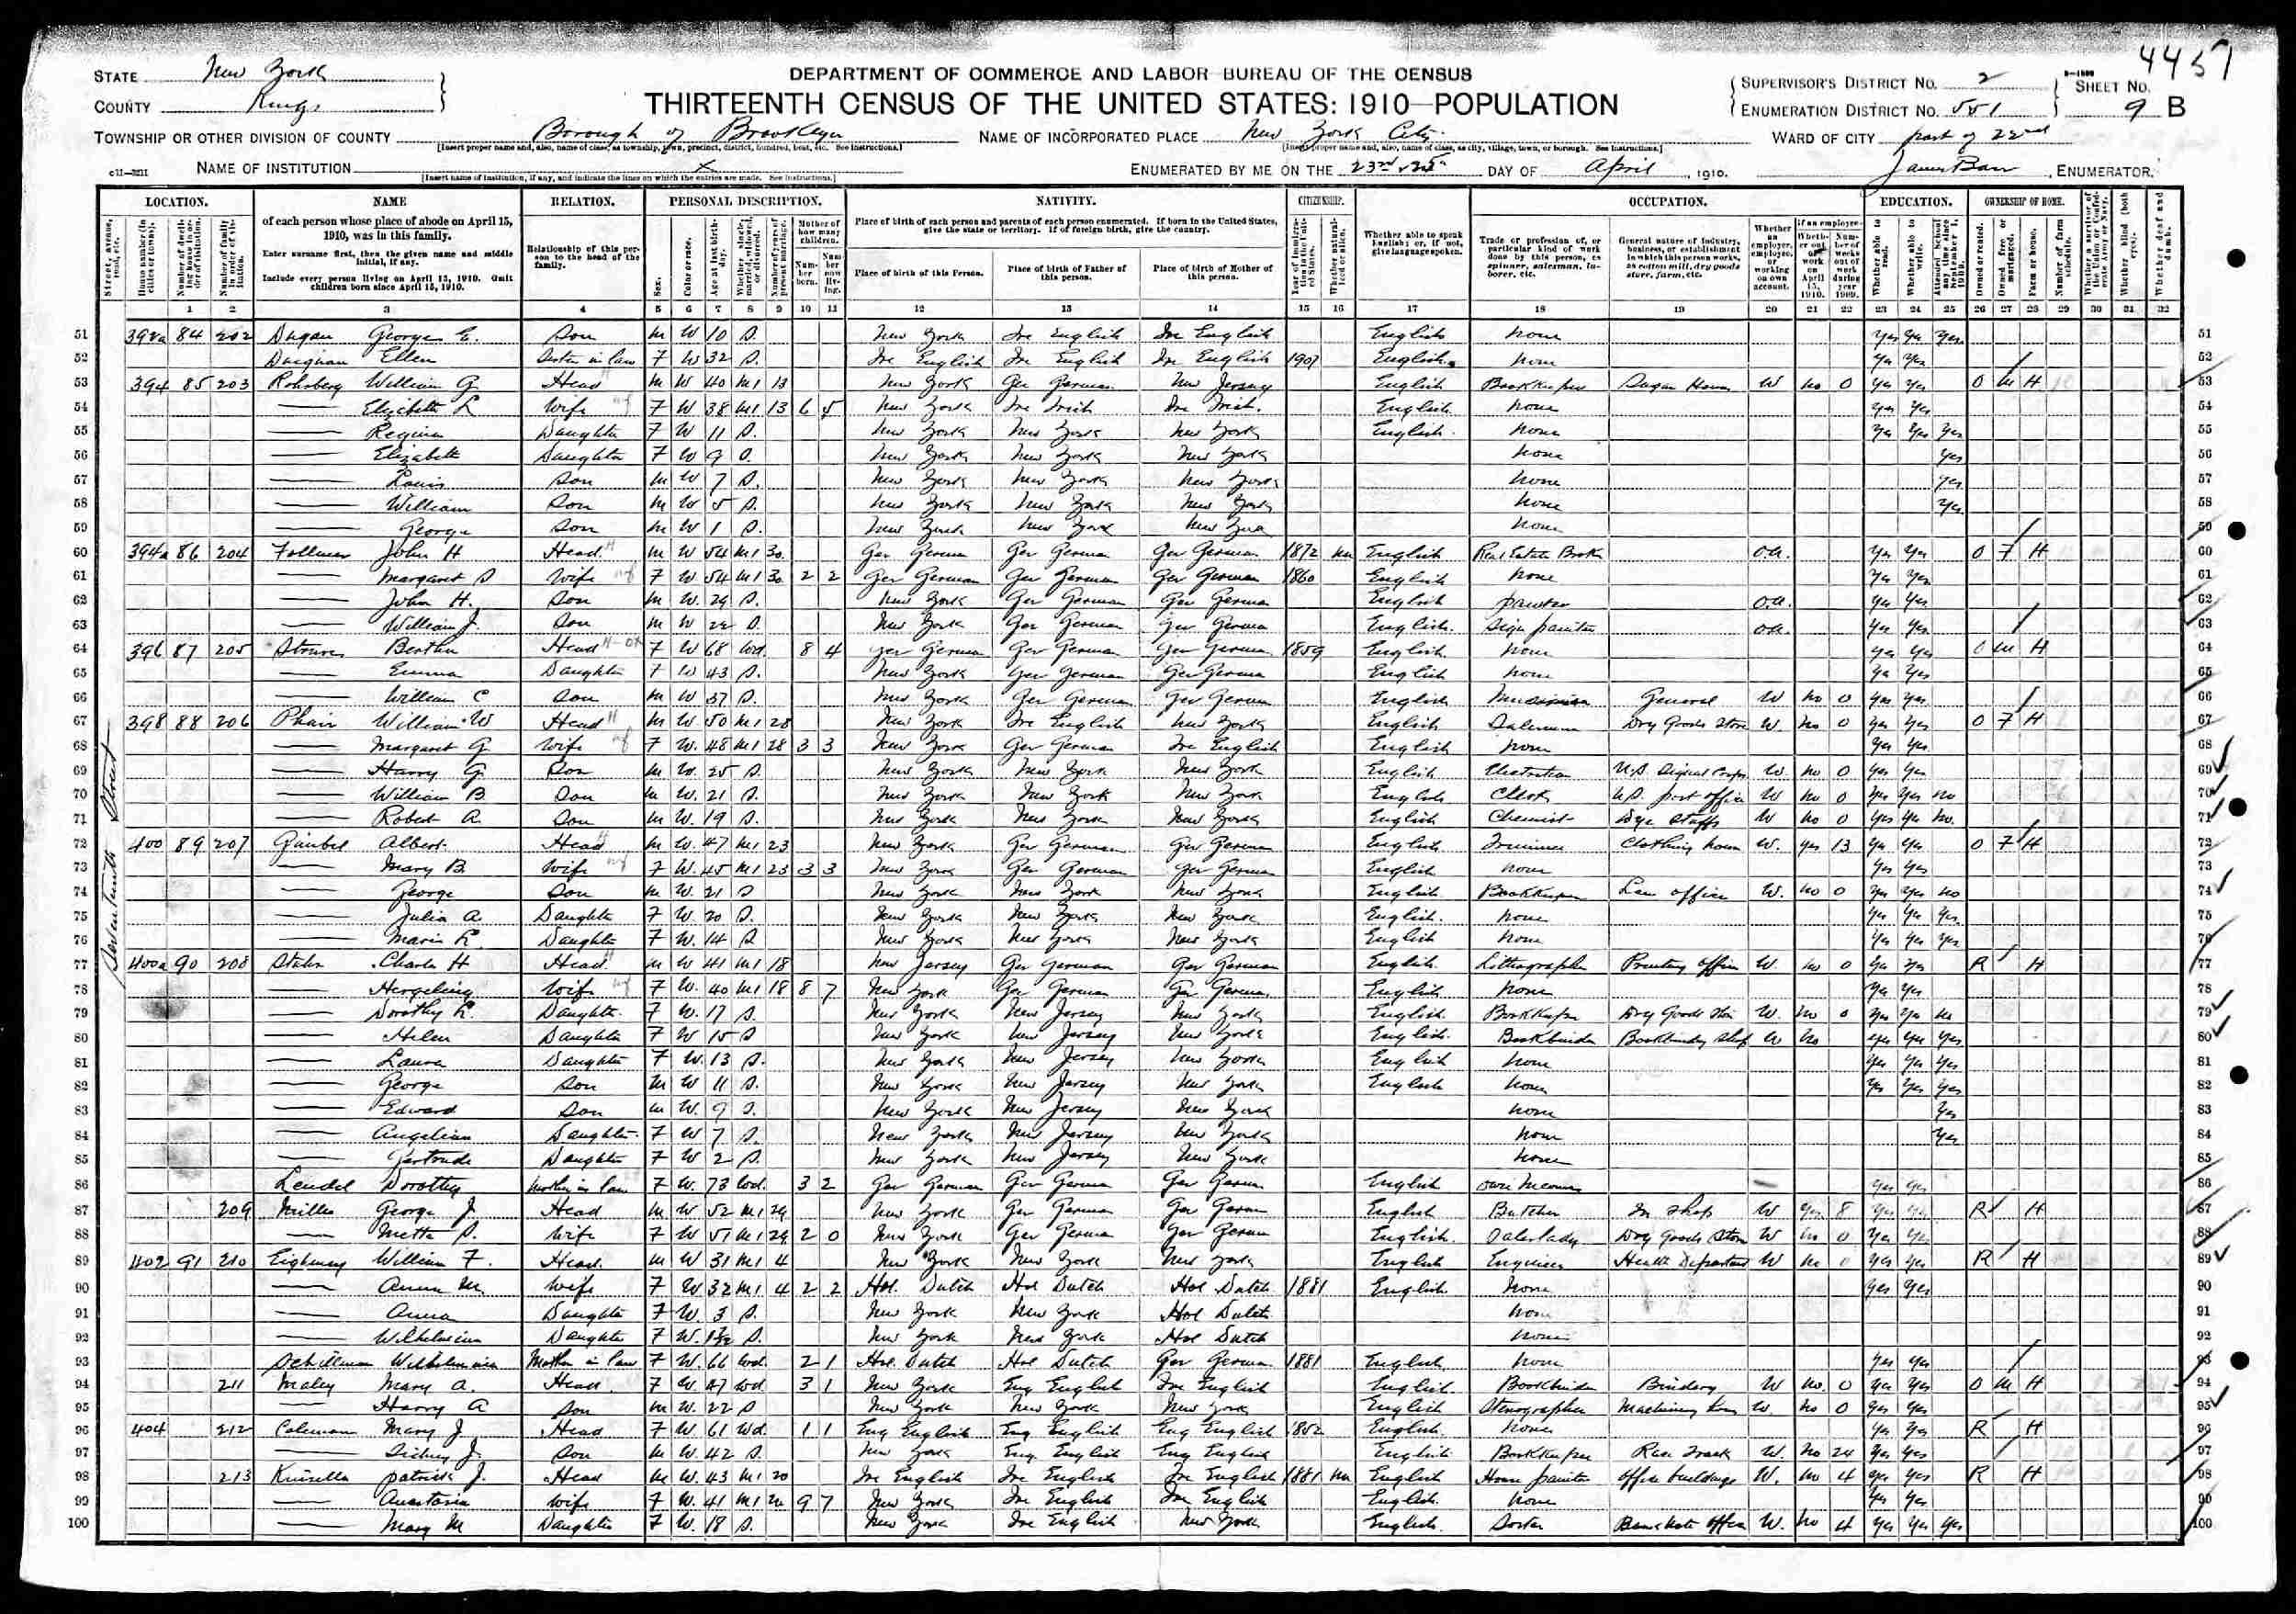 4457
STATE New York
COUNTY Kings
DEPARTMENT OF COMMERCE AND LABOR—BUREAU OF THE CENSUS
THIRTEENTH CENSUS OF THE UNITED STATES: 1910—POPULATION
SUPERVISOR'S DISTRICT NO. 2
ENUMERATION DISTRICT NO. 551
SHEET NO. 9 B
TOWNSHIP OR OTHER DIVISION OF COUNTY Borough of Brooklyn
NAME OF INCORPORATED PLACE New York City
WARD OF CITY part of 22nd
NAME OF INSTITUTION X
ENUMERATED BY ME ON THE 23rd DAY OF April, 1910.
James Barr, ENUMERATOR.
LOCATION. NAME RELATION. PERSONAL DESCRIPTION. NATIVITY. CITIZENSHIP. OCCUPATION. EDUCATION. OWNERSHIP OF HOME.
of each person whose place of abode on April 15, 1910, was in this family.
Enter surname first, then the given name and middle initial, if any.
Include every person living on April 15, 1910. Omit children born since April 15, 1910.
Relationship of this person to the head of the family.
Place of birth of each person and parents of each person enumerated. If born in the United States, give the state or territory. If of foreign birth, give the country.
Place of birth of this Person. Place of birth of Father of this person. Place of birth of Mother of this person.
Whether able to speak English; or, if not, give language spoken.
Trade or profession of, or particular kind of work done by this person, as spinner, salesman, laborer, etc.
General nature of industry, business, or establishment in which this person works, as cotton mill, dry goods store, farm, etc.
Seventeenth Street
51 392a 84 202 Dugan George E. Son M W 10 S. New York Ire English Ire English English None Yes Yes Yes 51
52 Ellen Sister in law F W 32 S. Ire English Ire English Ire English 1907 English None Yes Yes 52
53 394 85 203 William G Head M W 40 M1 13 New York Ger German New Jersey English Bookkeeper Sugar House W no 0 Yes Yes O M H 53
54 Elizabeth L Wife F W 38 M1 13 6 5 New York Ire Irish Ire Irish English None Yes Yes 54
55 Regina Daughter F W 11 S. New York New York New York English None Yes Yes Yes 55
56 Elizabeth Daughter F W 9 S. New York New York New York None Yes 56
57 Louis Son M W 7 S. New York New York New York None Yes 57
58 William Son M W 5 S. New York New York New York None Yes 58
59 George Son M W 1 S. New York New York New York None 59
60 394a 86 204 John H Head M W 54 M1 30 Ger German Ger German Ger German 1872 na English Real Estate Broker O.A. Yes Yes O F H 60
61 Margaret S Wife F W 54 M1 30 2 2 Ger German Ger German Ger German 1860 English None Yes Yes 61
62 John H. Son M W 29 S. New York Ger German Ger German English painter O.A. Yes Yes 62
63 William J. Son M W S. New York Ger German Ger German English Sign painter O.A. Yes Yes 63
64 396 87 205 Bertha Head F W 68 Wd. 8 4 Ger German Ger German Ger German 1859 English None Yes Yes O M H 64
65 Emma Daughter F W 43 S. New York Ger German Ger German English None Yes Yes 65
66 William C Son M W 37 S. New York Ger German Ger German English Musician General W no 0 Yes Yes 66
67 398 88 206 Phair William W Head M W 50 M1 28 New York Ire English New York English Salesman Dry Goods Store W. no 0 Yes Yes O F H 67
68 Margaret G. Wife F W. 48 M1 28 3 3 New York Ger German Ire English English None Yes Yes 68
69 Harry G. Son M W. 25 S. New York New York New York English Electrician U.S. Signal Corps W. no 0 Yes Yes 69
70 William B. Son M W. 21 S. New York New York New York English Clerk U.S. post office W no 0 Yes Yes no 70
71 Robert A. Son M W. 19 S. New York New York New York English Chemist Dye Stuffs W no 0 Yes Yes no 71
72 400 89 207 Albert Head M W. 47 M1 23 New York Ger German Ger German English Trimmer Clothing house W. Yes 13 Yes Yes O F H 72
73 Mary B. Wife F W. 45 M1 23 3 3 New York Ger German Ger German English None Yes Yes 73
74 George Son M W. 21 S New York New York New York English Bookkeeper Law office W. no 0 Yes Yes no 74
75 Julia A. Daughter F W. 20 S. New York New York New York English None Yes Yes Yes 75
76 Marie L. Daughter F W. 14 S New York New York New York English None Yes Yes Yes 76
77 400a 90 208 Stahn Charles H Head M W 41 M1 18 New Jersey Ger German Ger German English Lithographer Printing office W. no 0 Yes Yes R H 77
78 Wife F W. 40 M1 18 8 7 New York Ger German Ger German English None Yes Yes 78
79 Dorothy L. Daughter F W. 17 S. New York New Jersey New York English Bookkeeper Dry Goods Store W. no 0 Yes Yes no 79
80 Helen Daughter F W 15 S New York New Jersey New York English Bookbinder Bookbinding Shop W no Yes Yes Yes 80
81 Laura Daughter F W. 13 S. New York New Jersey New York English None Yes Yes Yes 81
82 George Son M W 11 S. New York New Jersey New York English None Yes Yes Yes 82
83 Edward Son M W. 9 S. New York New Jersey New York None Yes 83
84 Angelina Daughter F W 7 S. New York New Jersey New York None Yes 84
85 Gertrude Daughter F W 2 S. New York New Jersey New York None 85
86 Dorothy Mother in law F W. 73 Wd. 3 2 Ger German Ger German Ger German English Own Income Yes Yes 86
87 209 Miller George J. Head M W 52 M1 29 New York Ger German Ger German English Butcher In Shop W Yes 8 Yes Yes R H 87
88 Metta S. Wife F W 51 M1 29 2 0 New York Ger German Ger German English Saleslady Dry Goods Store W no 0 Yes Yes 88
89 402 91 210 Eighmey William F. Head M W 31 M1 4 New York New York New York English Engineer Health Department W no 0 Yes Yes R H 89
90 Anna M. Wife F W 32 M1 4 2 2 Hol. Dutch Hol Dutch Hol Dutch 1881 English None Yes Yes 90
91 Anna Daughter F W. 3 S. New York New York Hol Dutch None 91
92 Wilhelmina Daughter F W. S. New York New York Hol Dutch None 92
93 Wilhelmina Mother in law F W. 66 Wd. 2 1 Hol. Dutch Hol Dutch Ger German 1881 English None Yes Yes 93
94 211 Maley Mary A. Head F W. 47 Wd 3 1 New York Eng English Ire English English Bookbinder Bindery W no 0 Yes Yes O M H 94
95 Harry A Son M W. 22 S New York New York New York English Stenographer Machinery W. no 0 Yes Yes 95
96 404 212 Coleman Mary J Head F W 61 Wd. 1 1 Eng English Eng English Eng English 1852 English None Yes Yes R H 96
97 Sidney J. Son M W. 42 S. New York Eng English Eng English English Bookkeeper Race Track W. no 24 Yes Yes 97
98 213 Kinsella Patrick J. Head M W. 43 M1 20 Ire English Ire English Ire English 1881 na English House painter office buildings W. no 4 Yes Yes R H 98
99 Anastasia Wife F W. 41 M1 20 9 7 New York Ire English Ire English English None Yes Yes 99
100 Mary M Daughter F W. 18 S. New York Ire English New York English Sorter Bank Note office W. no 4 Yes Yes Yes 100